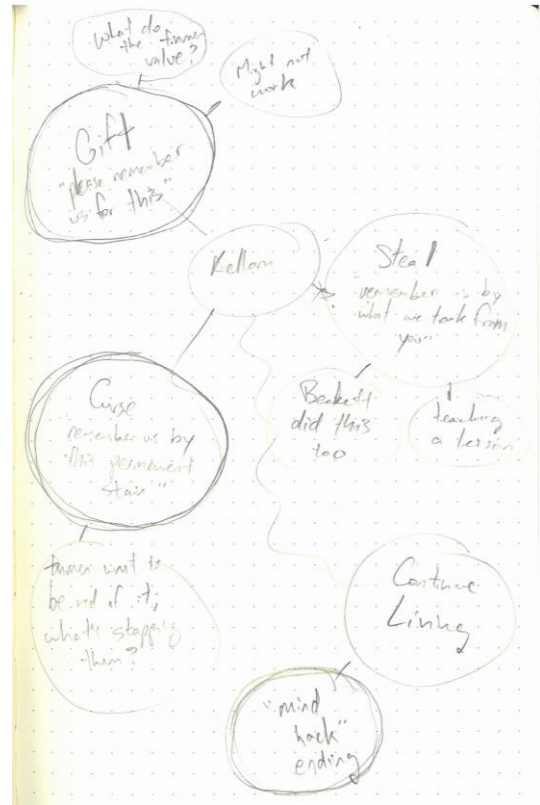 What do
the
value?
Might not
work
Gift
"please remember
us for this"
Kellam
Steal
remember us by
what we took from
you"
Curse
remember us by
this permanent
stain"
Beckett
did this
too
teaching
a lesson
want to
be rid of it;
what's stopping
them?
Continue
Living
"mind
hack"
ending